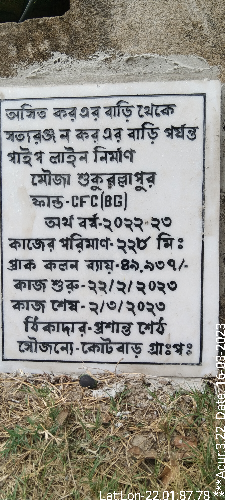 অসিত কর এর বাড়ি থেকে
সত্যরঞ্জন কর এর বাড়ি পর্যন্ত
পাইপ লাইন নির্মাণ
মৌজা শুকুরুল্লাপুর
ফান্ড-CFC(BG)
অর্থ বর্ষ-২০২২-২৩
কাজের পরিমাণ-২২৮ মিঃ
প্রাক কলন ব্যায়-৪৯,৯৩৭/-
কাজ শুরু-২২/২/২০২৩
কাজ শেষ-২/৩/২০২৩
ঠিকাদার-প্রশান্ত শেঠ
সৌজন্যে-কোটবাড় গ্রাঃপঃ
LatLon-22.01:87.78
***Acur 3.22 Date:16-03-2023